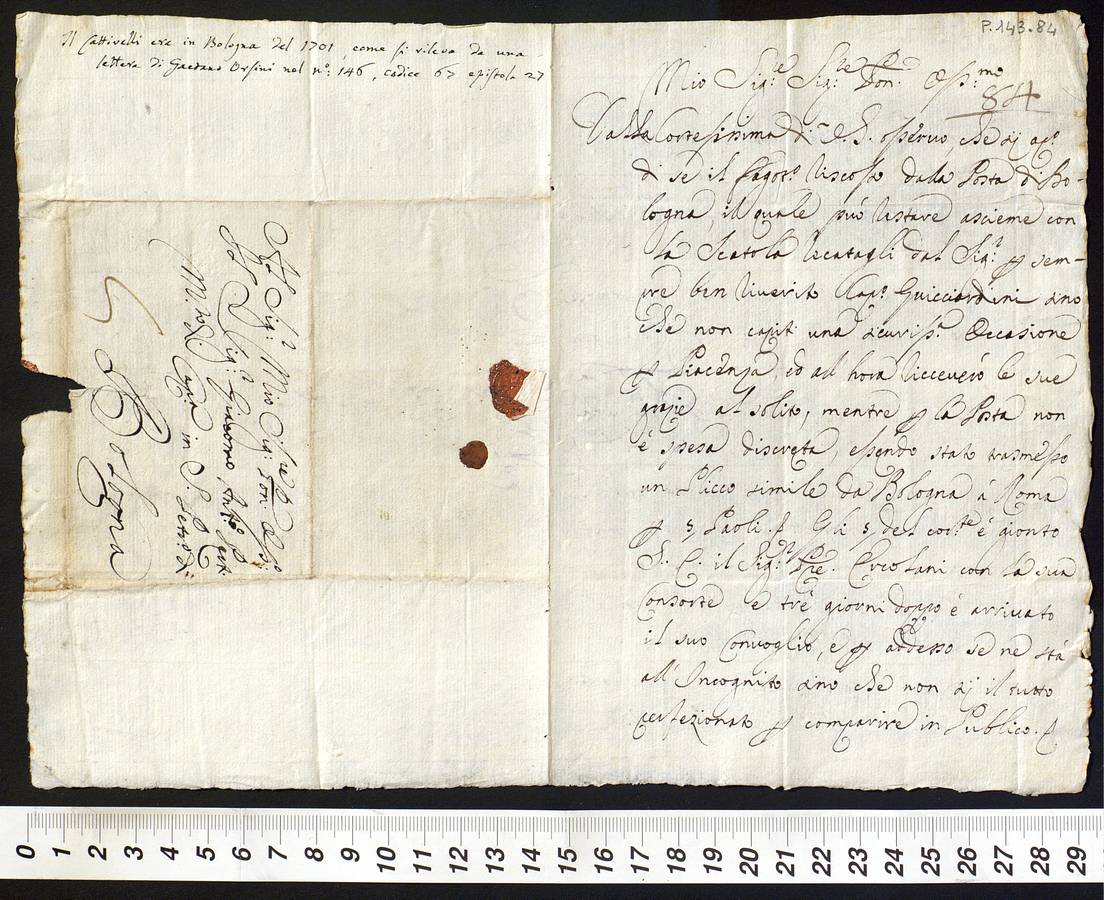 Il Cattivelli era in Bologna del 1701, come si rileva da una
lettera di Gaetano Orsini nel n.º 146, codice 67 epistola 27
P.143.84
84
Mio Sig.re Sig.re P.ron Oss.mo
Dalla Cortesissima di V.S. osservo, che
di se il Fagot.º riscosso dalla Posta di Bo-
logna, il quale può restare assieme con
la Scatola recatagli dal Sig.r p sem-
pre ben riverito Cap.º Guicciardini sino
che non capiti una sicuriss.ª Occasione
p Piacenza, ed all'hora riceverò le sue
grazie al solito, mentre p la Posta non
è spesa discreta, essendo stato trasmesso
un Plicco simile da Bologna á Roma
p 3 Paoli. Gli 5 del cor.te é gionto
S. E. il Sig.r P.pe Ercolani con la sua
Consorte e tré giorni doppo é arrivato
il suo Convoglio, e p addesso se ne stá
all'Incognito sino che non sij il tutto
perfezionato p comparire in Publico.
Al Sig.r Mio Sig.re P.ron Oss.mo
Il Sig.r Giacomo Ant.º Perti
M.ro di Capp.ª in S. Petr.º di
Bologna
0 1 2 3 4 5 6 7 8 9 10 11 12 13 14 15 16 17 18 19 20 21 22 23 24 25 26 27 28 29